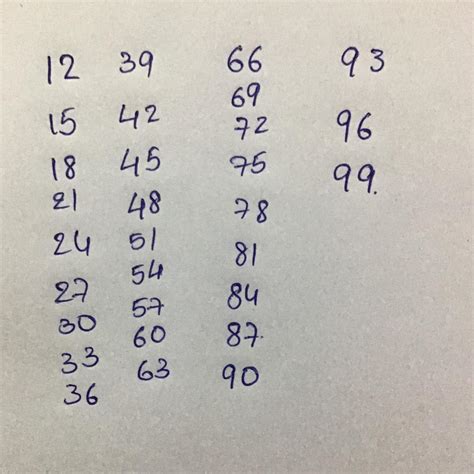 12 39 66 93
69
15 42 72 96
18 45 75 99.
21 48 78
24 51 81
27 54 84
30 57 87.
33 60 90
36 63